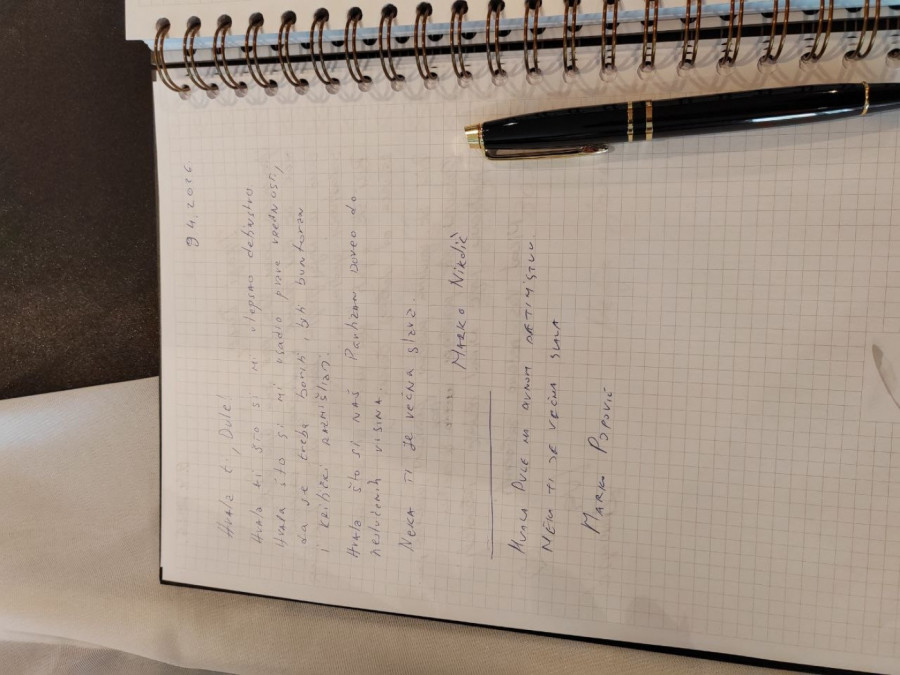 9 4. 2026
Hvala ti, Dule!
Hvala ti što si mi ulepšao detinjstvo
Hvala što si mi usadio prave vrednosti,
da se treba boriti, biti buntovan
i kritički razmišljati.
Hvala što si naš Partizan doveo do
neslućenih visina.
NEKA TI JE VEČNA SLAVA.
MARKO Nikolić
HVALA DULE NA DIVNOM DETINJSTVU
NEKA TI JE VEČNA SLAVA
MARKO POPOVIĆ